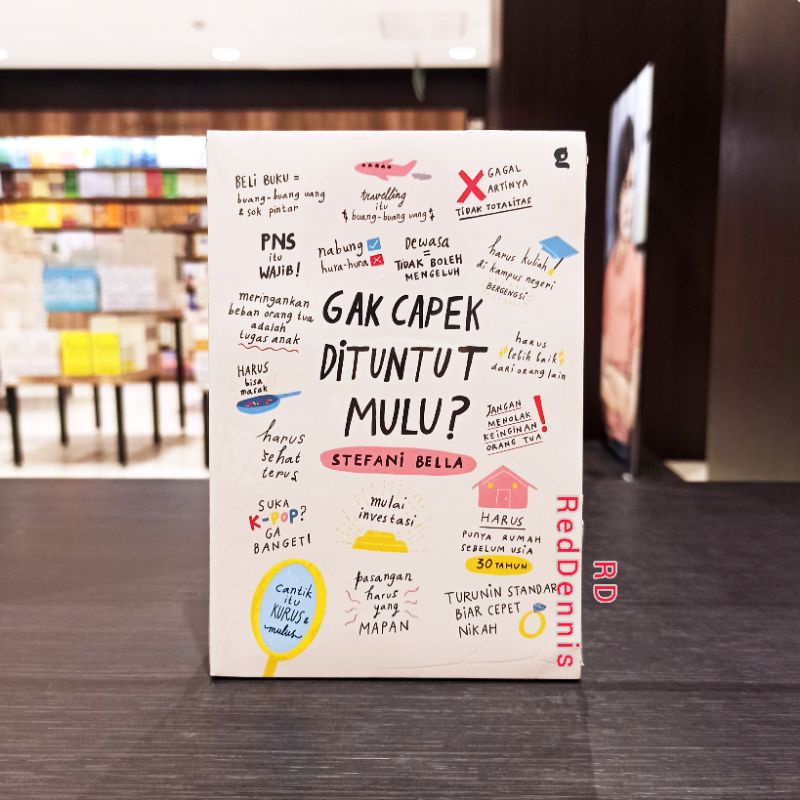 g
BELI BUKU =
buang-buang uang
& sok pintar
travelling
itu
buang-buang uang
GAGAL
ARTINYA
TIDAK TOTALITAS
PNS
itu
WAJIB!
nabung
hura-hura
Dewasa
=
TIDAK BOLEH
MENGELUH
harus kuliah
di kampus negeri
BERGENGSI
meringankan
beban orang tua
adalah
tugas anak
GAK CAPEK
DITUNTUT
MULU?
STEFANI BELLA
harus
lebih baik
dari orang lain
HARUS
bisa
masak
JANGAN
MENOLAK
KEINGINAN
ORANG TUA
!
harus
sehat
terus
SUKA
K-POP?
GA
BANGET!
mulai
investasi
HARUS
PUNYA RUMAH
SEBELUM USIA
30 TAHUN
cantik
itu
KURUS &
mulus
pasangan
harus
yang
MAPAN
TURUNIN STANDAR
BIAR CEPET
NIKAH
RedDennis
RD